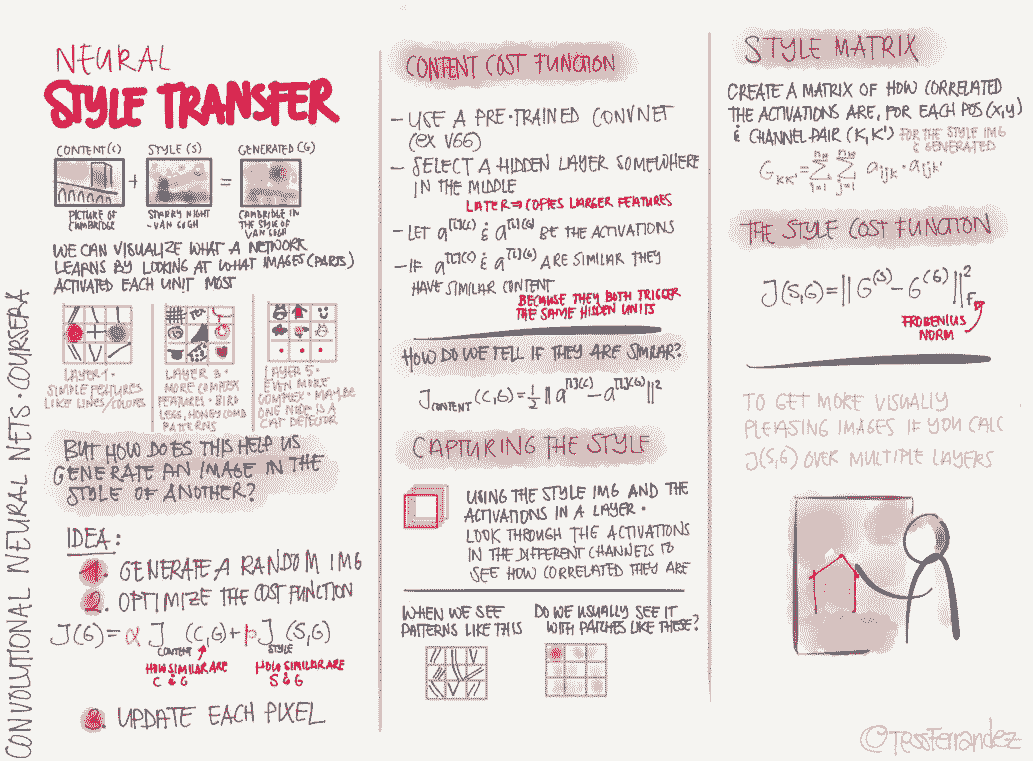 NEURAL
STYLE TRANSFER
CONTENT (C) STYLE (S) GENERATED (G)
+ =
PICTURE OF
CAMBRIDGE
STARRY NIGHT
- VAN GOGH
CAMBRIDGE IN
THE STYLE OF
VAN GOGH
WE CAN VISUALIZE WHAT A NETWORK
LEARNS BY LOOKING AT WHAT IMAGES (PARTS)
ACTIVATED EACH UNIT MOST
LAYER 1 ·
SIMPLE FEATURES
LIKE LINES/COLORS
LAYER 3 ·
MORE COMPLEX
FEATURES · BIRD
LEGS, HONEYCOMB
PATTERNS
LAYER 5 ·
EVEN MORE
COMPLEX · MAYBE
ONE NODE IS A
CAT DETECTOR
BUT HOW DOES THIS HELP US
GENERATE AN IMAGE IN THE
STYLE OF ANOTHER?
IDEA:
1. GENERATE A RANDOM IMG
2. OPTIMIZE THE COST FUNCTION
J(G) = α J_CONTENT (C,G) + β J_STYLE (S,G)
HOW SIMILAR ARE
C & G
HOW SIMILAR ARE
S & G
3. UPDATE EACH PIXEL
CONVOLUTIONAL NEURAL NETS · COURSERA
CONTENT COST FUNCTION
- USE A PRE-TRAINED CONVNET
(EX VGG)
- SELECT A HIDDEN LAYER SOMEWHERE
IN THE MIDDLE
LATER ⇒ COPIES LARGER FEATURES
- LET a^[l](C) & a^[l](G) BE THE ACTIVATIONS
- IF a^[l](C) & a^[l](G) ARE SIMILAR THEY
HAVE SIMILAR CONTENT
BECAUSE THEY BOTH TRIGGER
THE SAME HIDDEN UNITS
HOW DO WE TELL IF THEY ARE SIMILAR?
J_CONTENT (C,G) = 1/2 || a^[l](C) - a^[l](G) ||^2
CAPTURING THE STYLE
USING THE STYLE IMG AND THE
ACTIVATIONS IN A LAYER ·
LOOK THROUGH THE ACTIVATIONS
IN THE DIFFERENT CHANNELS TO
SEE HOW CORRELATED THEY ARE
WHEN WE SEE
PATTERNS LIKE THIS
DO WE USUALLY SEE IT
WITH PATCHES LIKE THESE?
STYLE MATRIX
CREATE A MATRIX OF HOW CORRELATED
THE ACTIVATIONS ARE, FOR EACH POS (x,y)
& CHANNEL-PAIR (K,K') FOR THE STYLE IMG
& GENERATED
G_KK' = Σ_{i=1}^{n_H} Σ_{j=1}^{n_W} a_ijk · a_ijk'
THE STYLE COST FUNCTION
J(S,G) = || G^(S) - G^(G) ||^2_F
FROBENIUS
NORM
TO GET MORE VISUALLY
PLEASING IMAGES IF YOU CALC
J(S,G) OVER MULTIPLE LAYERS
@TessFerrandez